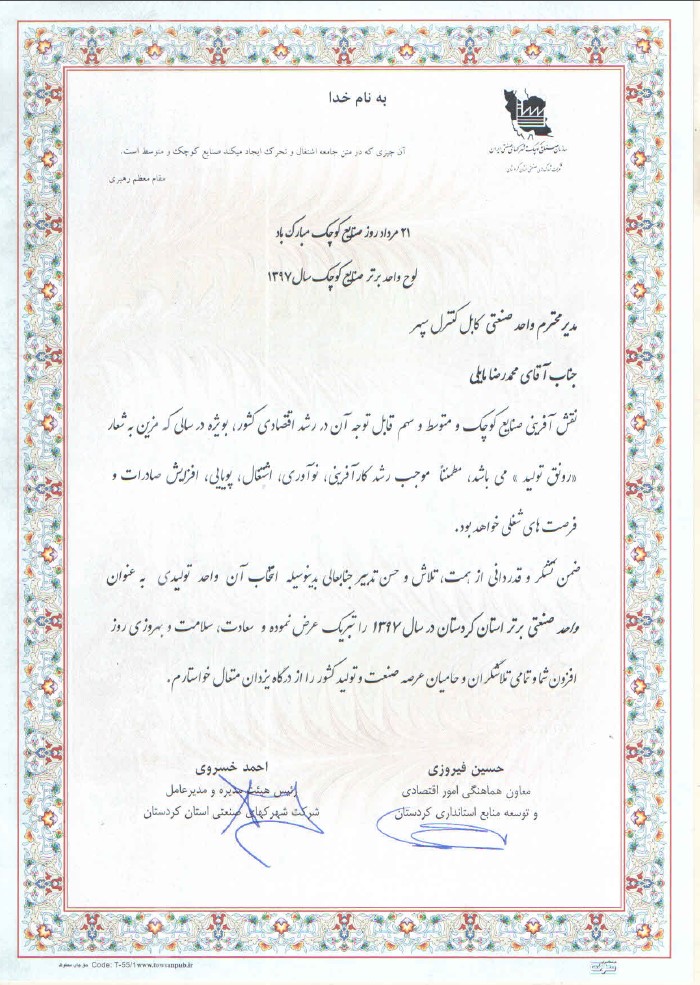 به نام خدا
سازمان صنایع کوچک و شهرکهای صنعتی ایران
شرکت شهرکهای صنعتی استان کردستان
آن چیزی که در متن جامعه اشتغال و تحرک ایجاد میکند صنایع کوچک و متوسط است.
مقام معظم رهبری
۲۱ مرداد روز صنایع کوچک مبارک باد
لوح واحد برتر صنایع کوچک سال ۱۳۹۷
مدیر محترم واحد صنعتی کابل کنترل سپهر
جناب آقای محمدرضا بابلی
نقش آفرینی صنایع کوچک و متوسط و سهم قابل توجه آن در رشد اقتصادی کشور، بویژه در سالی که مزین به شعار
«رونق تولید» می باشد، مطمئناً موجب رشد کارآفرینی، نوآوری، اشتغال، پویایی، افزایش صادرات و
فرصت های شغلی خواهد بود.
ضمن تشکر و قدردانی از همت، تلاش و حسن تدبیر جنابعالی بدینوسیله انتخاب آن واحد تولیدی به عنوان
واحد صنعتی برتر استان کردستان در سال ۱۳۹۷ را تبریک عرض نموده و سعادت، سلامت و بهروزی روز
افزون شما و تمامی تلاشگران و حامیان عرصه صنعت و تولید کشور را از درگاه یزدان متعال خواستارم.
حسین فیروزی
معاون هماهنگی امور اقتصادی
و توسعه منابع استانداری کردستان
احمد خسروی
رئیس هیئت مدیره و مدیرعامل
شرکت شهرکهای صنعتی استان کردستان
Code: T-55/1 www.towsanpub.ir